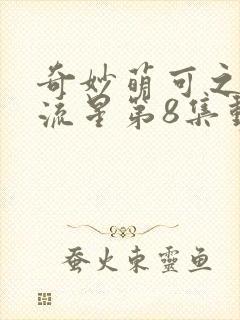 奇妙萌可之
流星第8集
蚕火东靈鱼